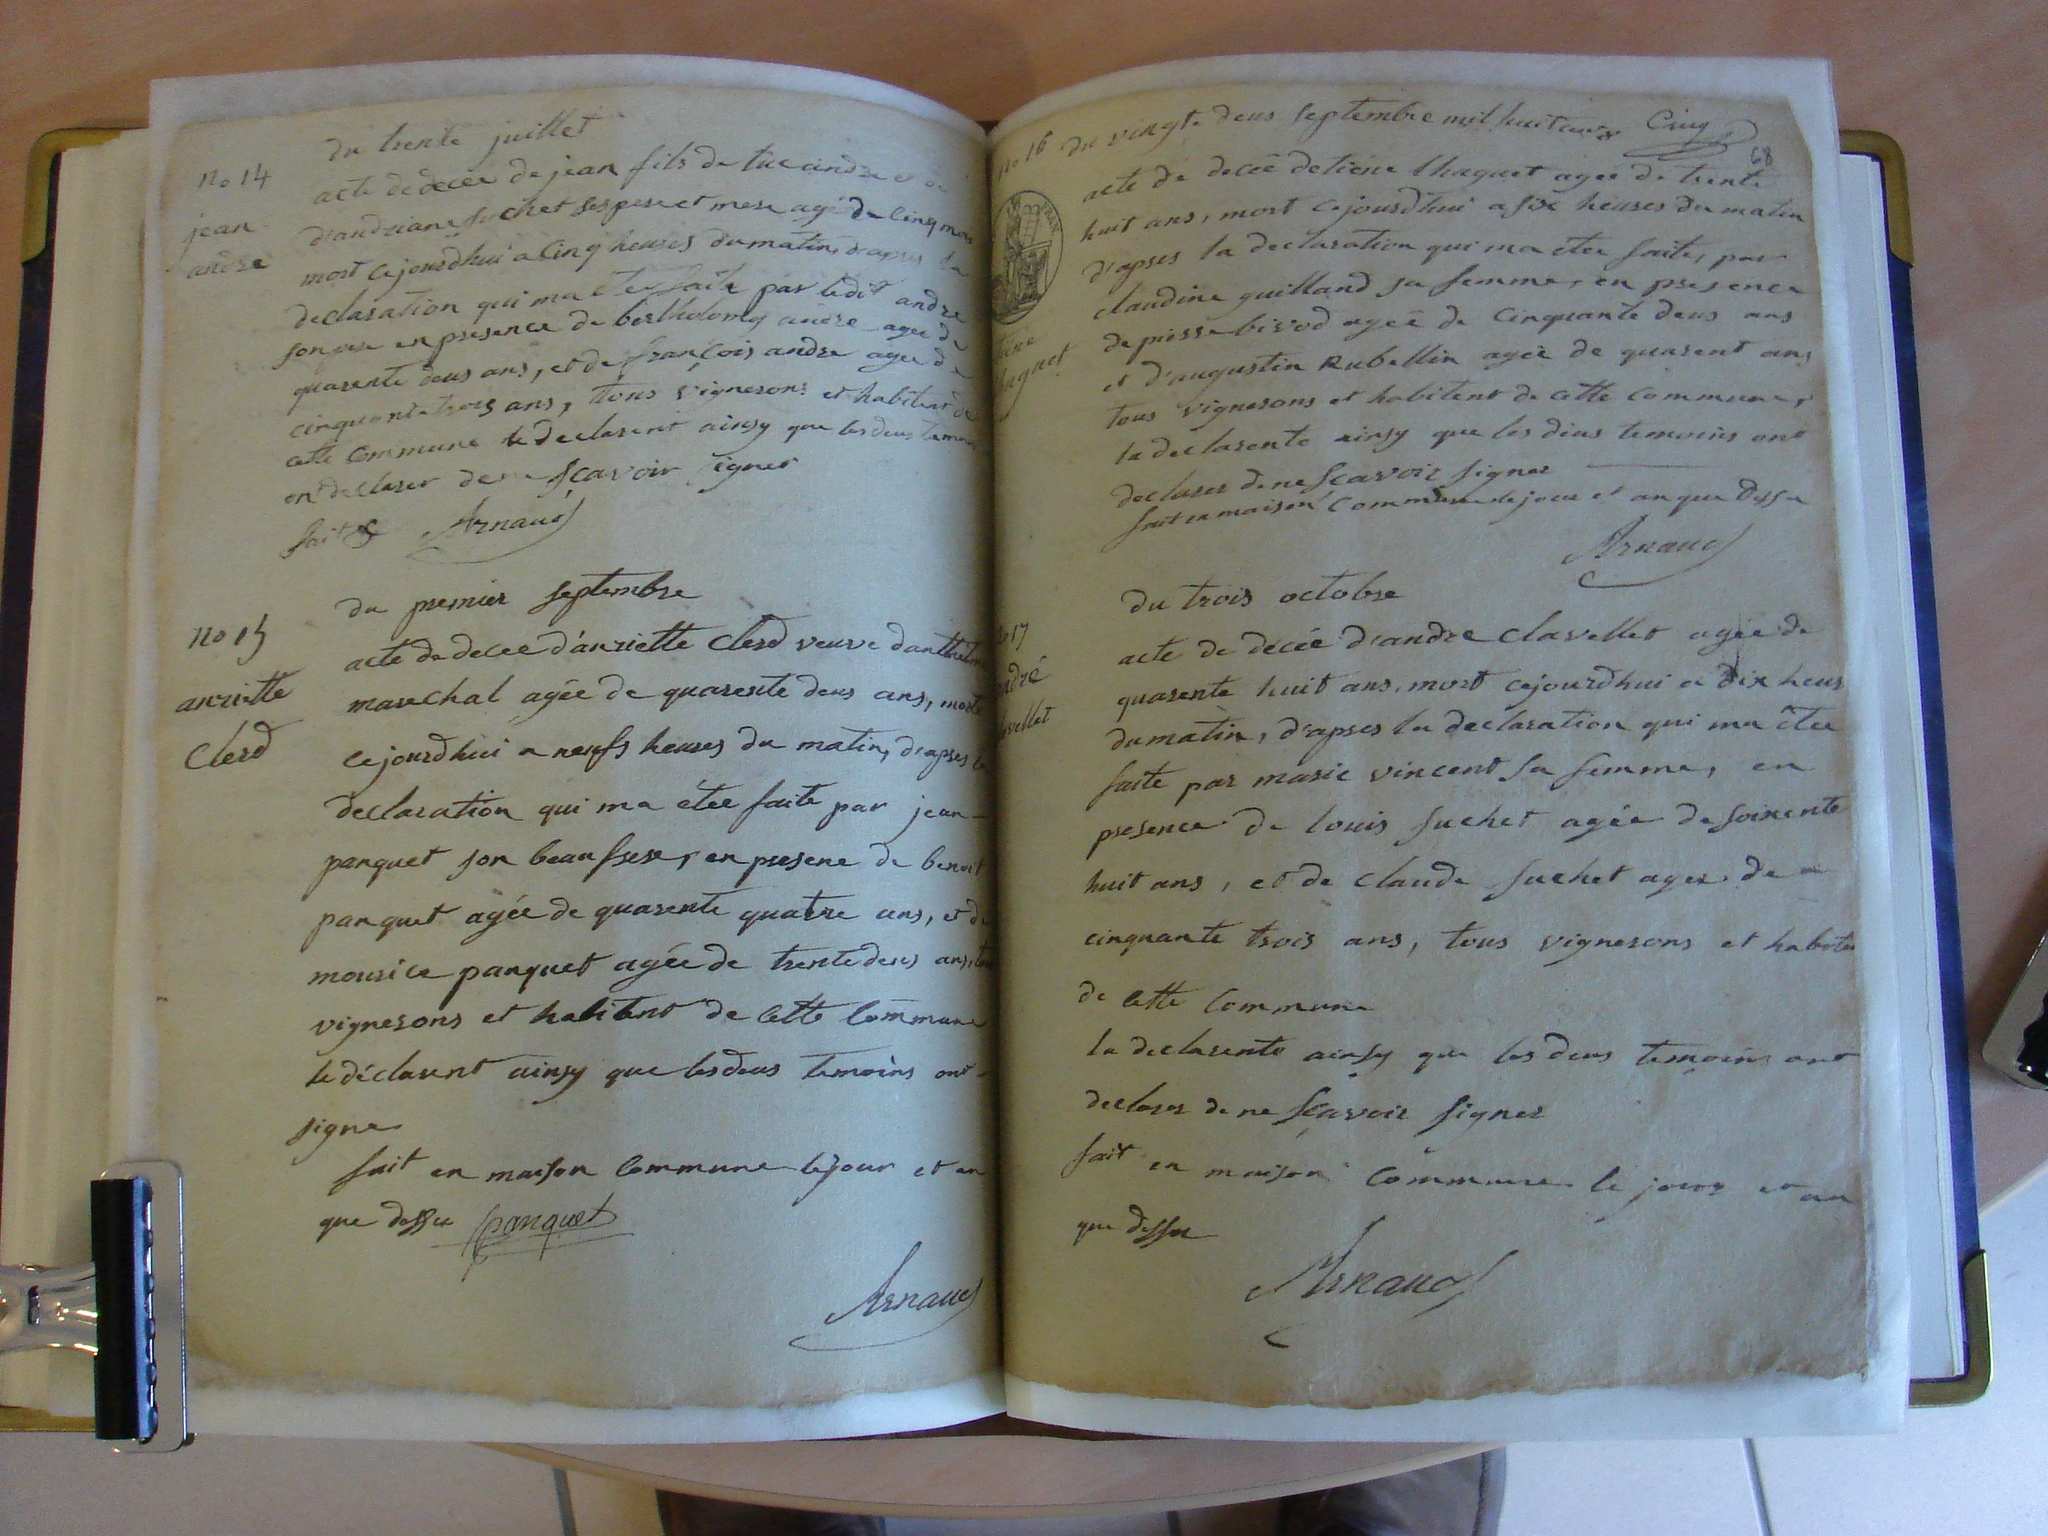 du trente juillet
no 14
jean
andre
acte de decée de jean fils de luc andre et de
d'andriane suchet ses pere et mere agé de Cinq mois
mort cejourdhui a Cinq heures du matin, d'apres la
declaration qui ma etée faite par ledit andre
son pere en presence de bertholomy andre agée de
quarente deus ans, et de françois andre agée de
cinquante trois ans, tous vignerons et habitent de
cette Commune le declarent ainsy que les deus temoins
ont declarer de ne scavoir signer
fait & Arnaud
du premier septembre
no 15
anriette
Clerd
acte de decée d'anriette Clerd veuve
marechal agée de quarente deus ans, morte
cejourdhui a neufs heures du matin, d'apres la
declaration qui ma étée faite par jean
panquet son beau frere, en presene de benoit
panquet agée de quarente quatre ans, et de
mourice panquet agée de trente deus ans, tous
vignerons et habitent de cette Commune
le déclarent ainsy que les deus temoins ont
signe
fait en maison Commune le jour et an
que dessu panquet
Arnaud
68
no 16 du vingt deus septembre mil huit cens Cinq
tiene
lhaguet
acte de decée de tiene lhaguet agée de trente
huit ans, mort cejourdhui a six heures du matin
d'apres la declaration qui ma etée faite, par
claudine guilland sa femme, en presence
de pierre bivod agée de Cinquante deus ans
et d'augustin Rubellin agée de quarent ans
tous vignerons et habitent de cette Commune,
la declarente ainsy que les deus temoins ont
declarer de ne scavoir signer
fait en maison Commune le jour et an que dessu
Arnaud
du trois octobre
no 17
andré
clavellet
acte de decée d'andre Clavellet agée de
quarente huit ans, mort cejourdhui a dix heurs
du matin, d'apres la declaration qui ma étée
faite par marie vincent sa femme, en
presence de louis suchet agée de soixente
huit ans, et de claude suchet agee de
cinquante trois ans, tous vignerons et habiten
de cette Commune
la declarente ainsy que les deus temoins ont
declarer de ne scavoir signer
fait en maison Commune le jour et an
que dessu
Arnaud